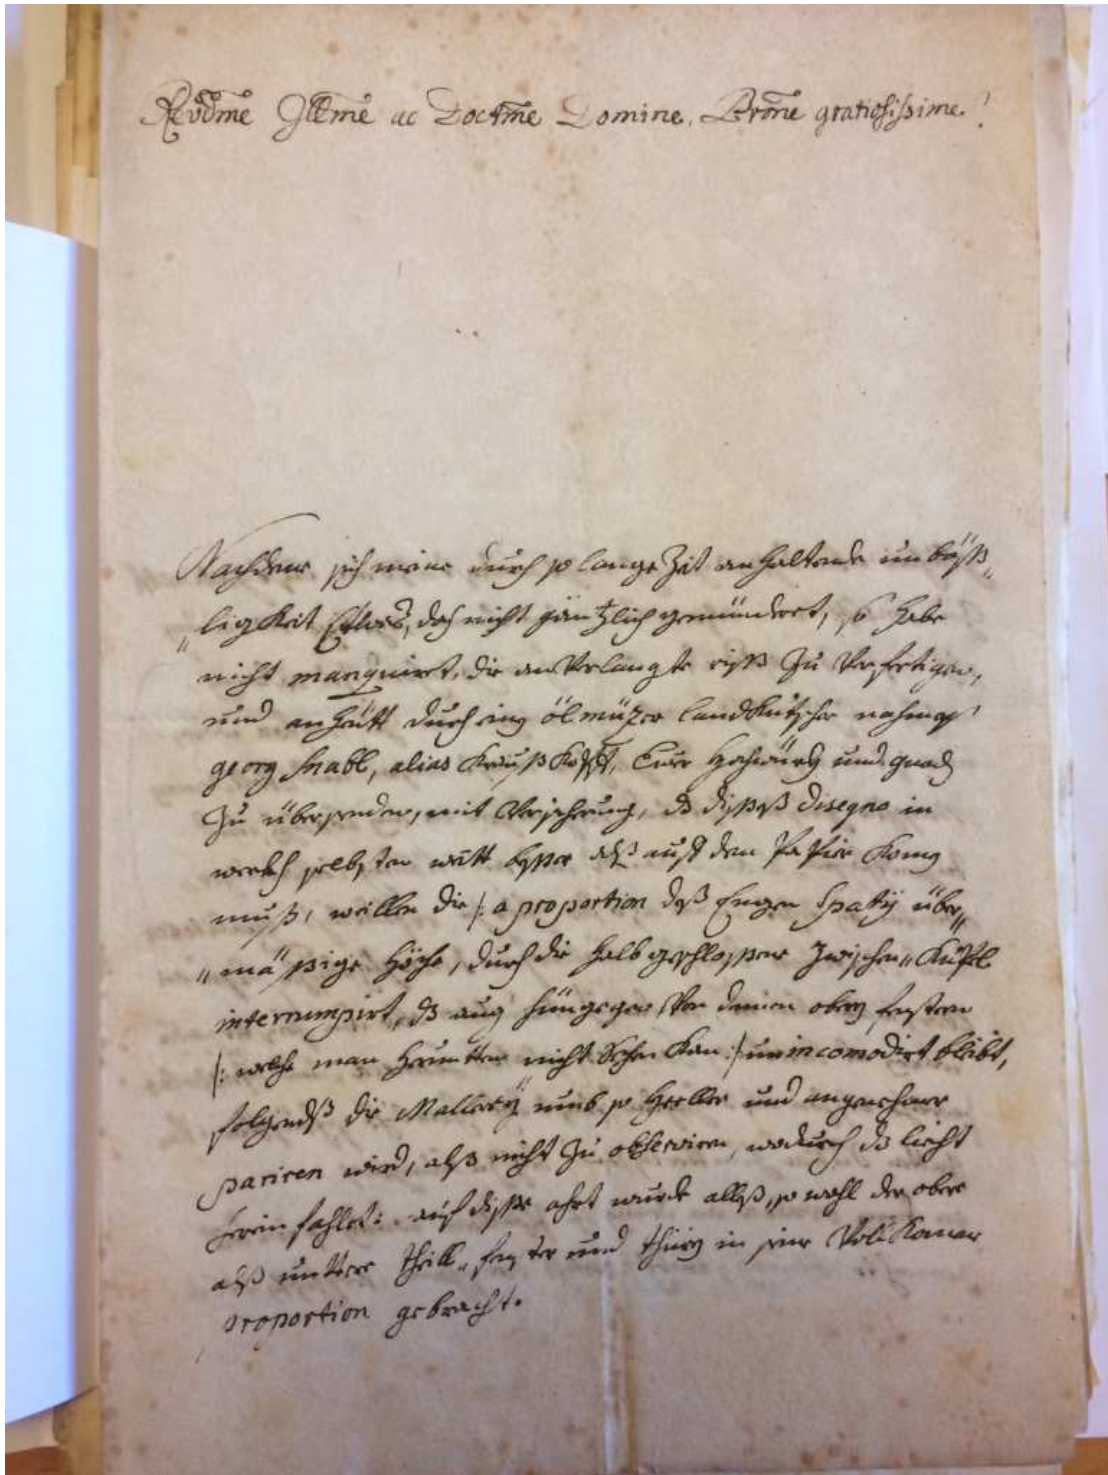 Revdme Illme ac Doctme Domine, Prone gratiosissime!
Nachdem sich meine durch so lange Zeit anhaltende unbäß„
„ligkeit Etwas, doch nicht gäntzlich gemündert, so habe
nicht manquiret, die an Verlangte riss zu Verfertigen,
und anheütt durch einen ölmützer landkutscher nahmens
georg Snabl, alias, Euer Hochwürd und gnad
zu übersenden, mit Versicherung, dß disses disegno in
werckh selbsten weitt besser alß auff dem Papier komen
muß, weillen die /: a proportion deß Engen Spatÿ über„
„mässige Höche, durch die halb geschlossene zwischen„
interrumpirt, dß aug hingegen Von denen obern fenstern
/: welche man herunten nicht Sehen kan :/ unincomodirt bleibt,
folgendß die Mallereÿ umb so Heeller und angenehmer
pariren wird, alß nicht zu observiren, wodurch dß liecht
herein fahlet: auf disse ahrt wurde alleß, so wohl der obere
alß untere theill, fenster und thüren in seine Volkomene
proportion gebracht.